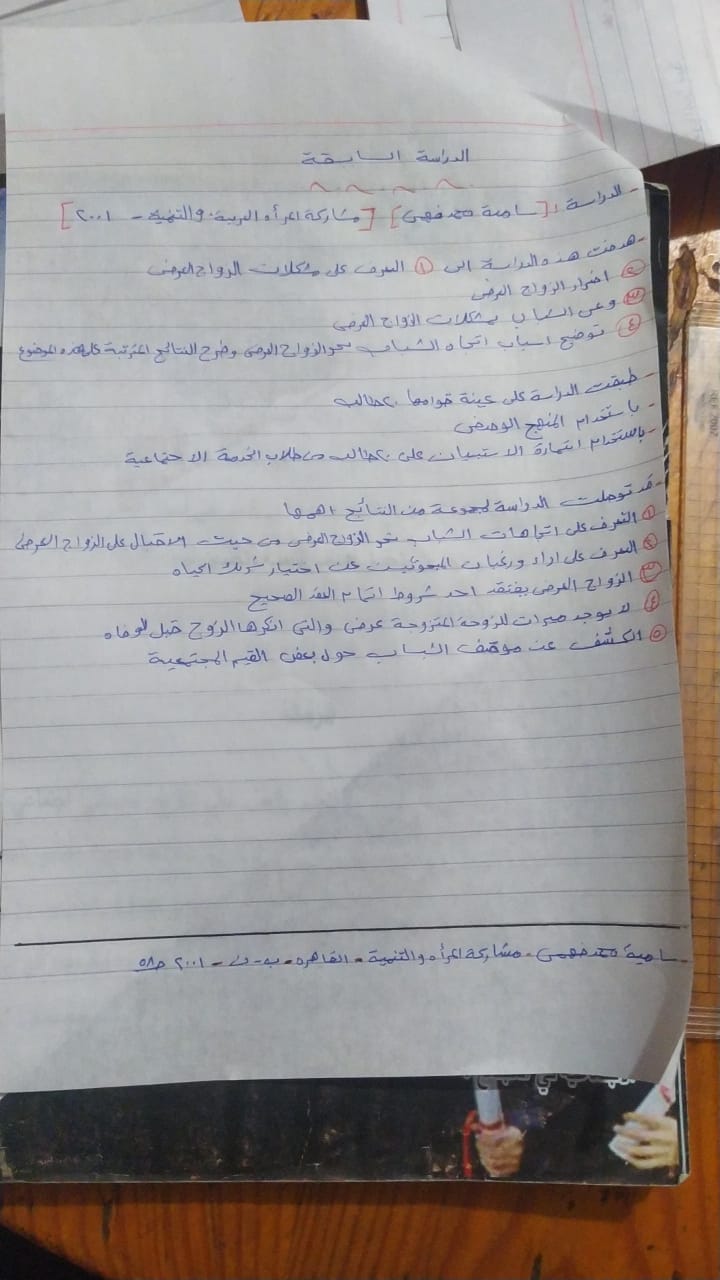 الدراسة السابقة
- الدراسة : [سامية محمد فهمي] [مشاركة المرأه العربية والتنميه - ٢٠٠١]
- هدفت هذه الدراسة الى ① التعرف على مشكلات الزواج العرفى
② اضرار الزواج العرفى
③ وعى الشباب بمشكلات الزواج العرفى
④ توضح اسباب اتجاه الشباب نحو الزواج العرفى وطرح النتائج المترتبة على هذه الموضوع
- طبقت الدراسة على عينة قوامها ٢٠ طالب
- باستخدام المنهج الوصفى
- باستخدام استمارة الاستبيان على ٢٠ طالب من طلاب الخدمة الاجتماعية
- قد توصلت الدراسة لمجموعة من النتائج اهمها
① التعرف على اتجاهات الشباب نحو الزواج العرفى من حيث الاقبال على الزواج العرفى
② التعرف على اراء ورغبات المبحوثين عن اختيار شريك الحياه
③ الزواج العرفى يفتقد احد شروط اتمام العقد الصحيح
④ لا يوجد ميراث للزوجة المتزوجة عرفى والتى انكرها الزوج قبل الوفاه
⑤ الكشف عن موقف الشباب حول بعض القيم المجتمعية
سامية محمد فهمى - مشاركة المرأه والتنمية - القاهره - ب - ن - ٢٠٠١ ص٥٨